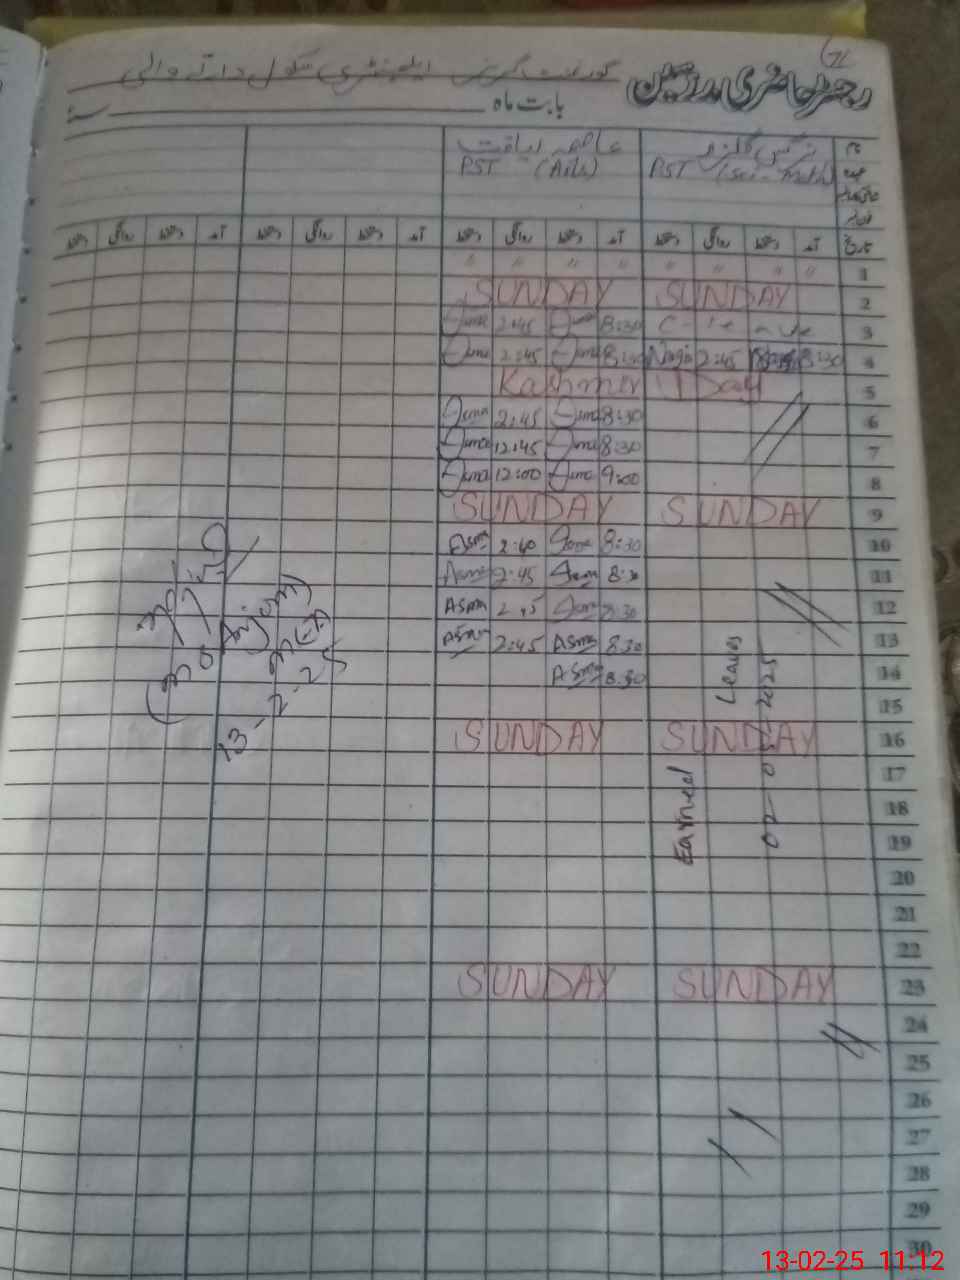 رجسٹر حاضری مدرسین
گورنمنٹ گرلز ایلیمنٹری سکول
بابت ماہ
نام
عاصمہ لیاقت
PST (Arts)
PST (Sci-Math)
تاریخ آمد دستخط روانگی دستخط آمد دستخط روانگی دستخط آمد دستخط روانگی دستخط آمد دستخط روانگی دستخط
" " " " " " " " 1
SUNDAY SUNDAY 2
Asma 2:45 Asma 8:30 C - le a ve 3
Asma 2:45 Asma 8:30 2:45 8:30 4
Kashmir Day 5
Asma 2:45 Asma 8:30 6
Asma 12:45 Asma 8:30 7
Asma 12:00 Asma 9:00 8
SUNDAY SUNDAY 9
Asma 2:40 Asma 8:30 10
Asma 2:45 Asma 8:30 11
Asma 2:45 Asma 8:30 12
Asma 2:45 Asma 8:30 13
Asma 8:30 14
15
SUNDAY SUNDAY 16
17
18
19
20
21
22
SUNDAY SUNDAY 23
24
25
26
27
28
29
30
Earned Leaves
Anjum
13-2-25
13-02-25 11:12